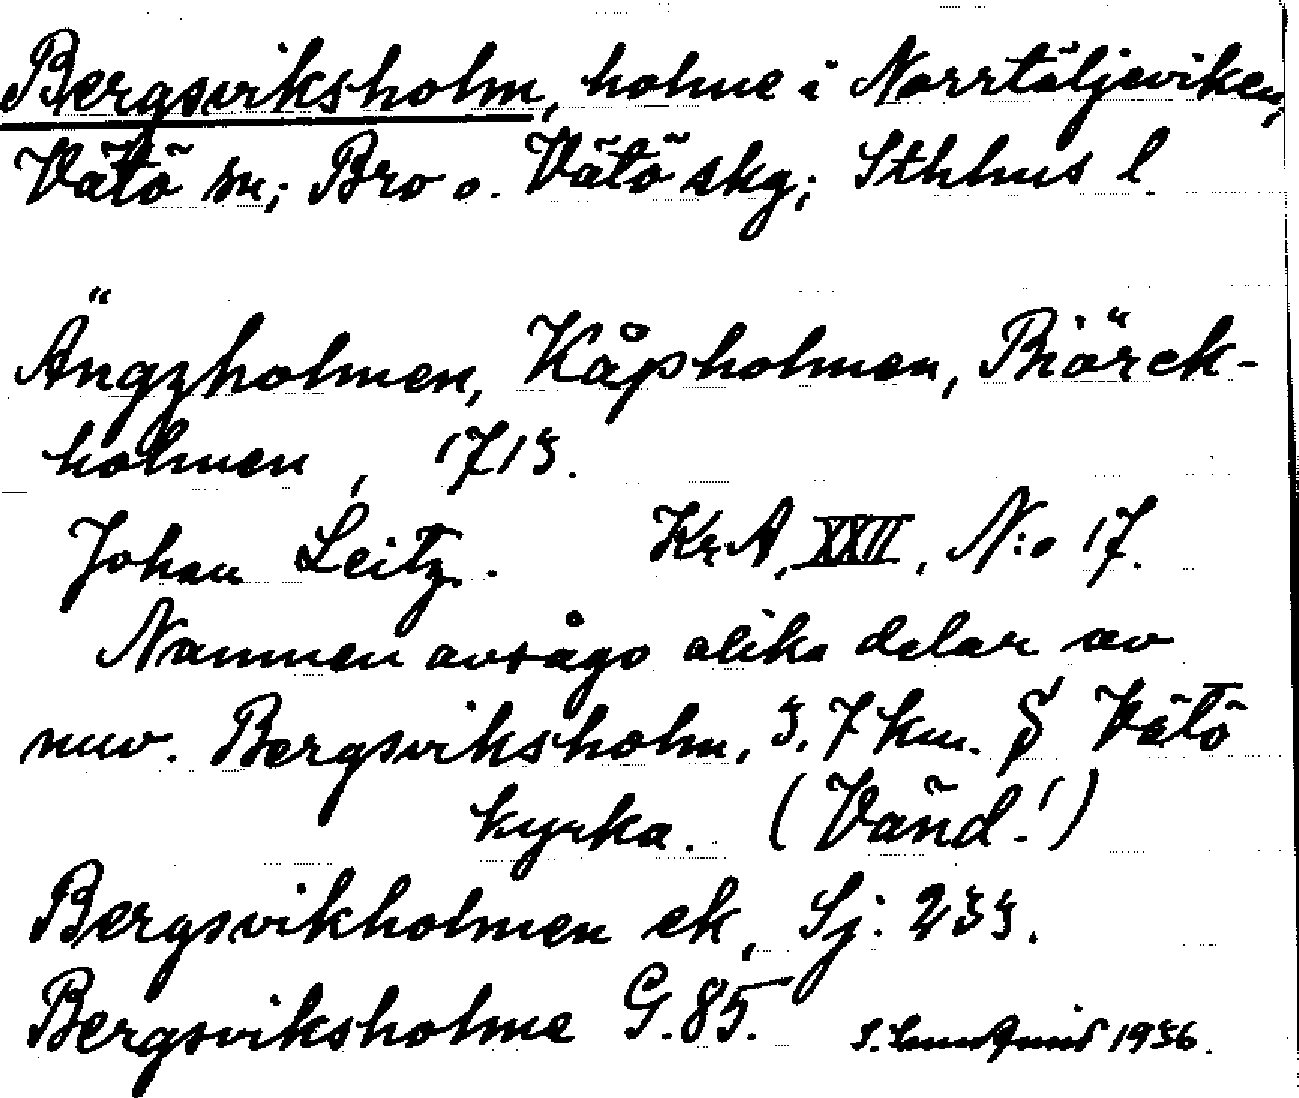 Bergsviksholm, holme i Norrtäljeviken,
Vätö sn; Bro o. Vätö skg; Sthlms l.
Ängzholmen, Kåpholmen, Biörck-
holmen, 1713.
Johan Leitz. Kr.A, XXII, N:o 17.
Namnen avsågo olika delar av
nuv. Bergsviksholm, 3.7 km. S Vätö
kyrka. (Vänd!)
Bergsvikholmen ek, Sj: 233.
Bergsviksholme G.85. S. Lundqvist 1936.